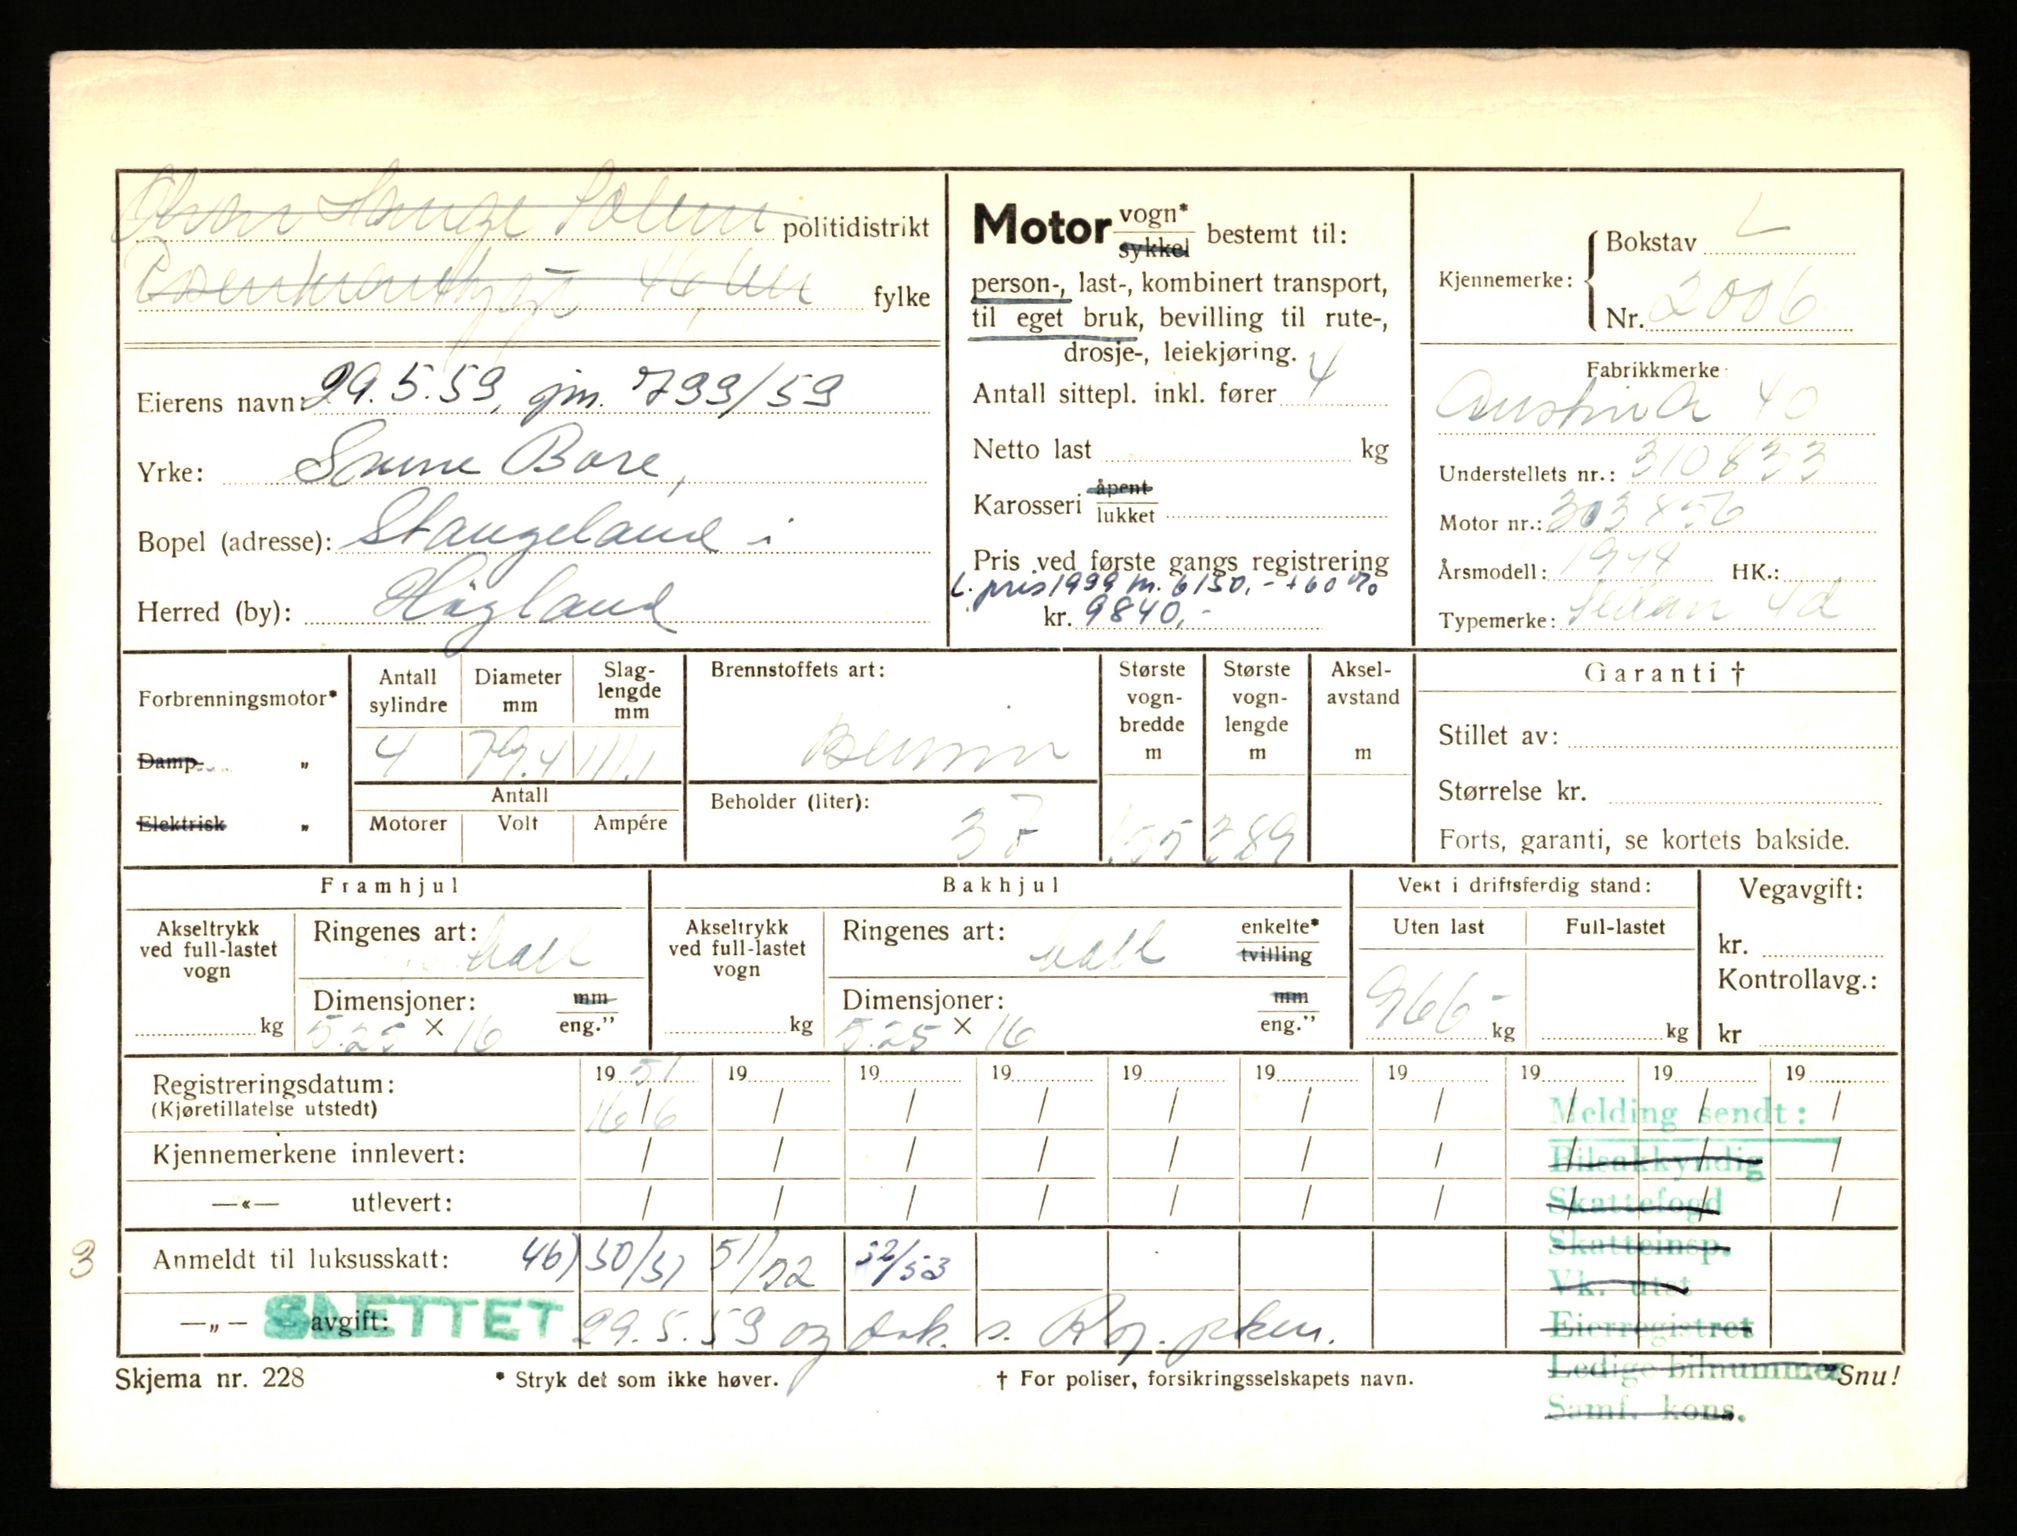 politidistrikt
fylke
Eierens navn: 29.5.59, gm. 799/59
Yrke: Bore,
Bopel (adresse): Stangeland i
Herred (by): Högland
Motor vogn* sykkel bestemt til:
person-, last-, kombinert transport,
til eget bruk, bevilling til rute-,
drosje-, leiekjøring.
Antall sittepl. inkl. fører 4
Netto last kg
Karosseri åpent lukket
Pris ved første gangs registrering
L. pris 1939 m. 6150,- + 60%
kr. 9840,-
Kjennemerke: Bokstav L
Nr. 2006
Fabrikkmerke
Austin A 40
Understellets nr.: 310833
Motor nr.: 303856
Årsmodell: 1949 HK.:
Typemerke: Sedan 4d
Forbrenningsmotor*
Damp- „
Elektrisk „
Antall sylindre
Diameter mm
Slag-lengde mm
4 79.4 111.1
Antall
Motorer Volt Ampére
Brennstoffets art:
Bensin
Beholder (liter):
37
Største vogn-bredde m
155
Største vogn-lengde m
389
Aksel-avstand m
Garanti †
Stillet av:
Størrelse kr.
Forts, garanti, se kortets bakside.
Framhjul
Akseltrykk ved full-lastet vogn
kg
Ringenes art: ball
Dimensjoner: mm
5.25 × 16 eng.”
Bakhjul
Akseltrykk ved full-lastet vogn
kg
Ringenes art: ball enkelte* tvilling
Dimensjoner: mm
5.25 × 16 eng.”
Vekt i driftsferdig stand:
Uten last Full-lastet
966- kg kg
Vegavgift:
kr.
Kontrollavg.:
kr
Registreringsdatum: 19 51 19 19 19 19 19 19 19 19 19
(Kjøretillatelse utstedt) 16/6 / / / / / / / / /
Kjennemerkene innlevert: / / / / / / / / / /
—«— utlevert: / / / / / / / / / /
Melding sendt:
Bilsakkyndig
Skattefogd
Skatteinsp.
Vk. utst
Eierregistret
Ledige bilnummer
Samf. kons.
3
Anmeldt til luksusskatt: 46) 50/51 51/52 52/53
—„— avgift:
SLETTET 29.5.59 og
Skjema nr. 228
* Stryk det som ikke høver.
† For poliser, forsikringsselskapets navn.
Snu!